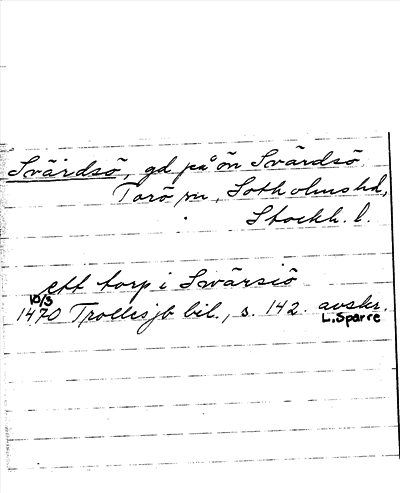 Svärdsö, gd på ön Svärdsö
Torö sn, Sotholms hd,
Stockh. l.
ett torp i Swärsiö
10/3
1470 Trolles jb bil., s. 142. avskr.
L. Sparre